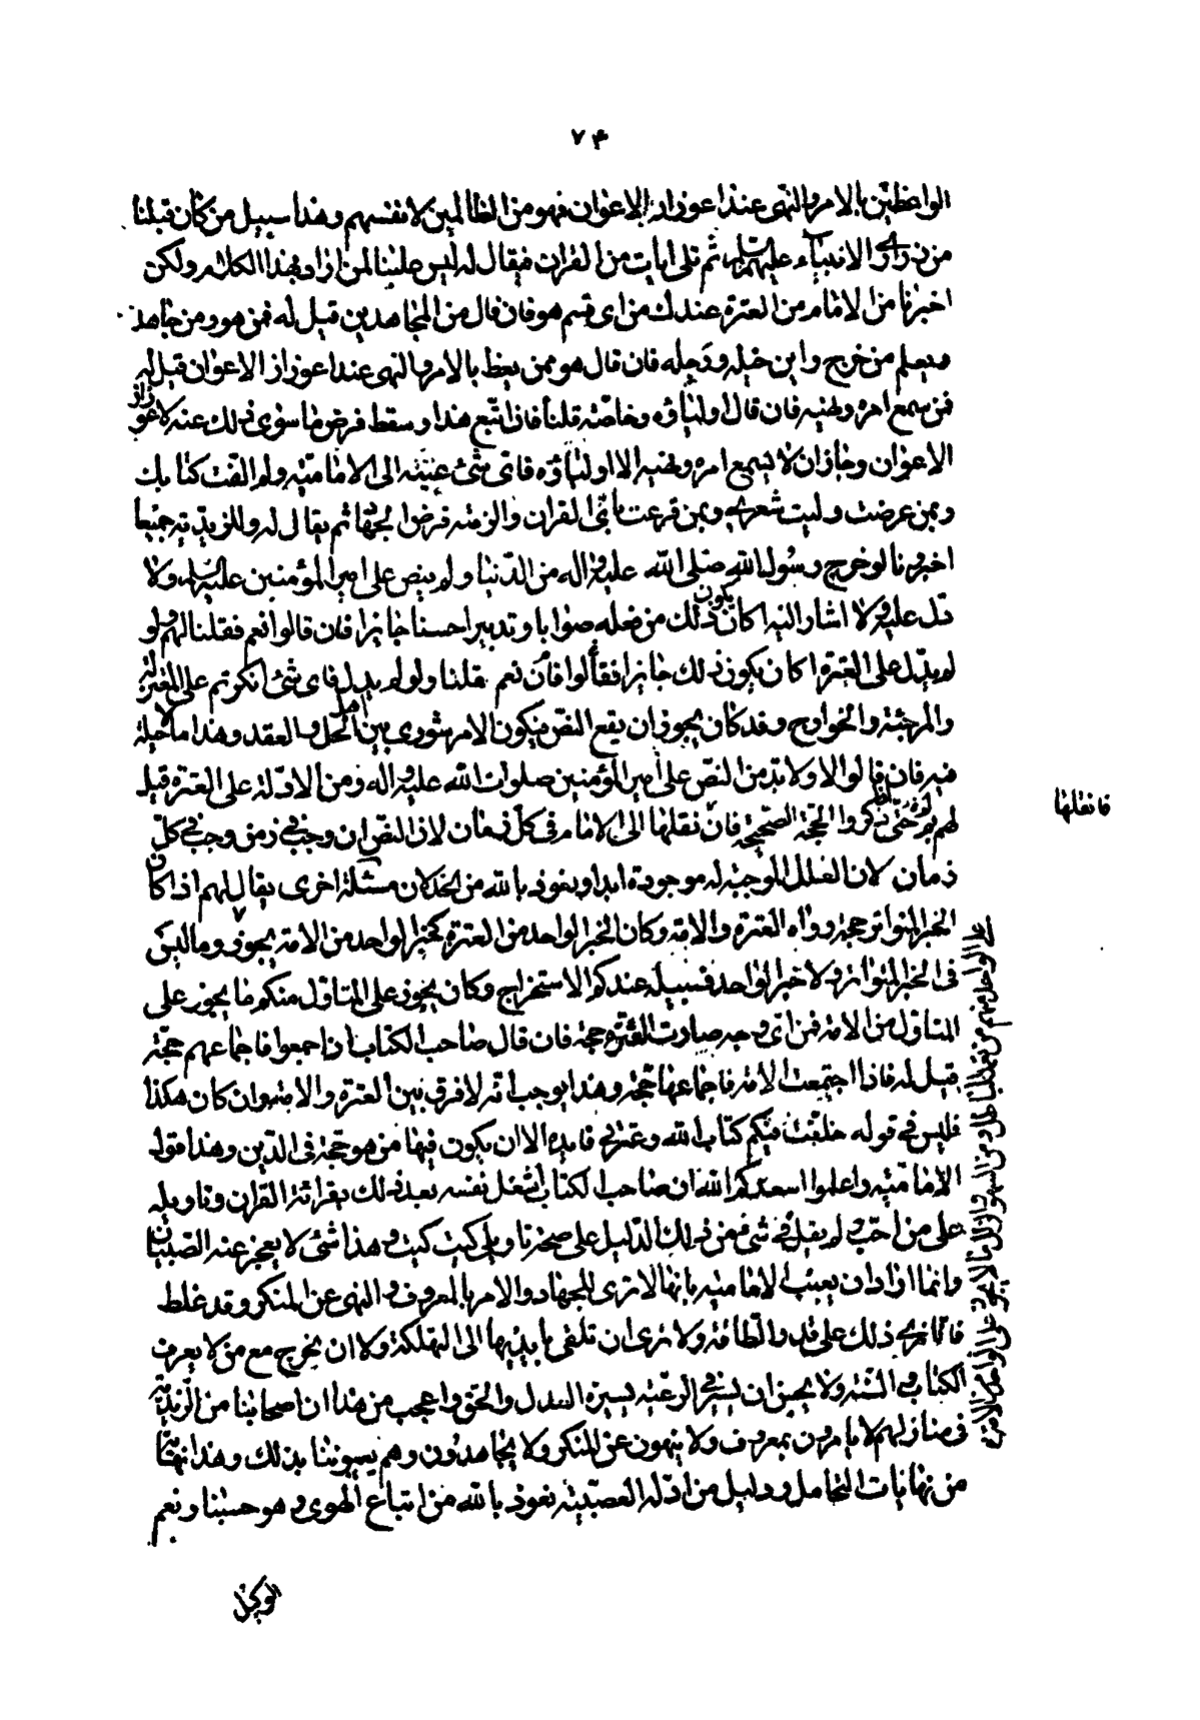 ٧۴
الواعظين بالامر والنهى عند اعواز الاعوان فهو من الظالمين لانفسهم وهذا سبيل من كان قبلنا
من ذرارى الانبياء عليهم السلم ثم تلى ايات من القران فيقال له ليس علينا لمن اراد بهذا الكلام ولكن
اخبرنا من الامام من العترة عندك من اى قسم هو فان قال من المجاهدين قيل له فمن هو ومن جاهد
ويعلم من خرج واين خيله ورجله فان قال هو ممن يعظ بالامر والنهى عند اعواز الاعوان قيل له
فمن سمع امره ونهيه فان قال اولياؤه وخاصته قلنا فان اتبع هذا وسقط فرض ما سوى ذلك عنه لاعواز
الاعوان وجاز ان لا يسمع امره ونهيه الا اولياؤه فاى شئ عبته الى الامامية ولم الفت كتابك
وبمن عرضت وليت شعرى وبمن قرعت باى القران والزمته فرض الجهاد ثم يقال له وللزيدية جميعا
اخبرونا لو خرج رسول الله صلى الله عليه واله من الدنيا ولم ينص على امير المؤمنين عليه السلم ولا
دل عليه ولا اشار اليه اكان يكون ذلك من فعله صوابا وتدبيرا حسنا جايزا فان قالوا نعم فقلنا لهم ولو
لم يدل على العترة اكان يكون ذلك جايزا فقالوا فان نعم قلنا ولو لم يدل فاى شئ انكرتم على المعتزلة
والمرجئة والخوارج وقد كان يجوز ان يقع النص فيكون الامر شورى بين اهل الحل والعقد وهذا ما لا حيلة
فيه فان قالوا لا ولا بد من النص على امير المؤمنين صلوات الله عليه واله ومن الادلة على العترة قيل
لهم لم حتى ذكروا الحجة الصحيحة فان نقلها الى الامام فى كل زمان لان النص ان وجب فى زمن وجب فى كل
زمان لان العلل الموجبة له موجودة ابدا ونعوذ بالله من الخذلان مسئلة اخرى يقال لهم اذا كان
الخبر المتواتر حجة رواه العترة والامة وكان الخبر الواحد من العترة كخبر الواحد من الامة يجوز
فى الخبر المتواتر ولا خبر الواحد فسبيله عندكم الاستخراج وكان يجوز على المتاول منكم ما يجوز على
المتاول من الامة فمن اى وجه صارت العترة حجة فان قال صاحب الكتاب اذا اجمعوا فاجماعهم حجة
قيل له فاذا اجتمعت الامة فاجماعها حجة وهذا يوجب انه لا فرق بين العترة والامة وان كان هكذا
فليس فى قوله خلفت فيكم كتاب الله وعترتى فايدة الا ان يكون فيها من هو حجة فى الدين وهذا قول
الامامية واعلموا اسعدكم الله ان صاحب الكتاب اشغل نفسه بعد ذلك بقرائة القران وتاويله
على من احب ولم يقل فى شئ من ذلك الدليل على صحة تاويلى كيت كيت وهذا شئ لا يعجز عنه الصبيان
وانما اراد ان يعيب الامامية بانها لا ترى الجهاد والامر بالمعروف والنهى عن المنكر وقد غلط
فانها ترى ذلك على قدر الطاقة ولا ترى ان تلقى بايديها الى التهلكة ولا ان يخرج مع من لا يعرف
الكتاب والسنة ولا يحسن ان يسير فى الرعية بسيرة العدل والحق واعجب من هذا ان اصحابنا من الزيدية
فى منازلهم لا يامرون بمعروف ولا ينهون عن المنكر ولا يجاهدون وهم يعيبوننا بذلك وهذا نهاية
من نهايات التحامل ودليل من ادلة العصبية نعوذ بالله من اتباع الهوى وهو حسبنا ونعم
الوكيل
على الواحد منهم من تعمد الباطل ومن السهو والزلل ما يجوز على الواحد من الامة
فانقلها